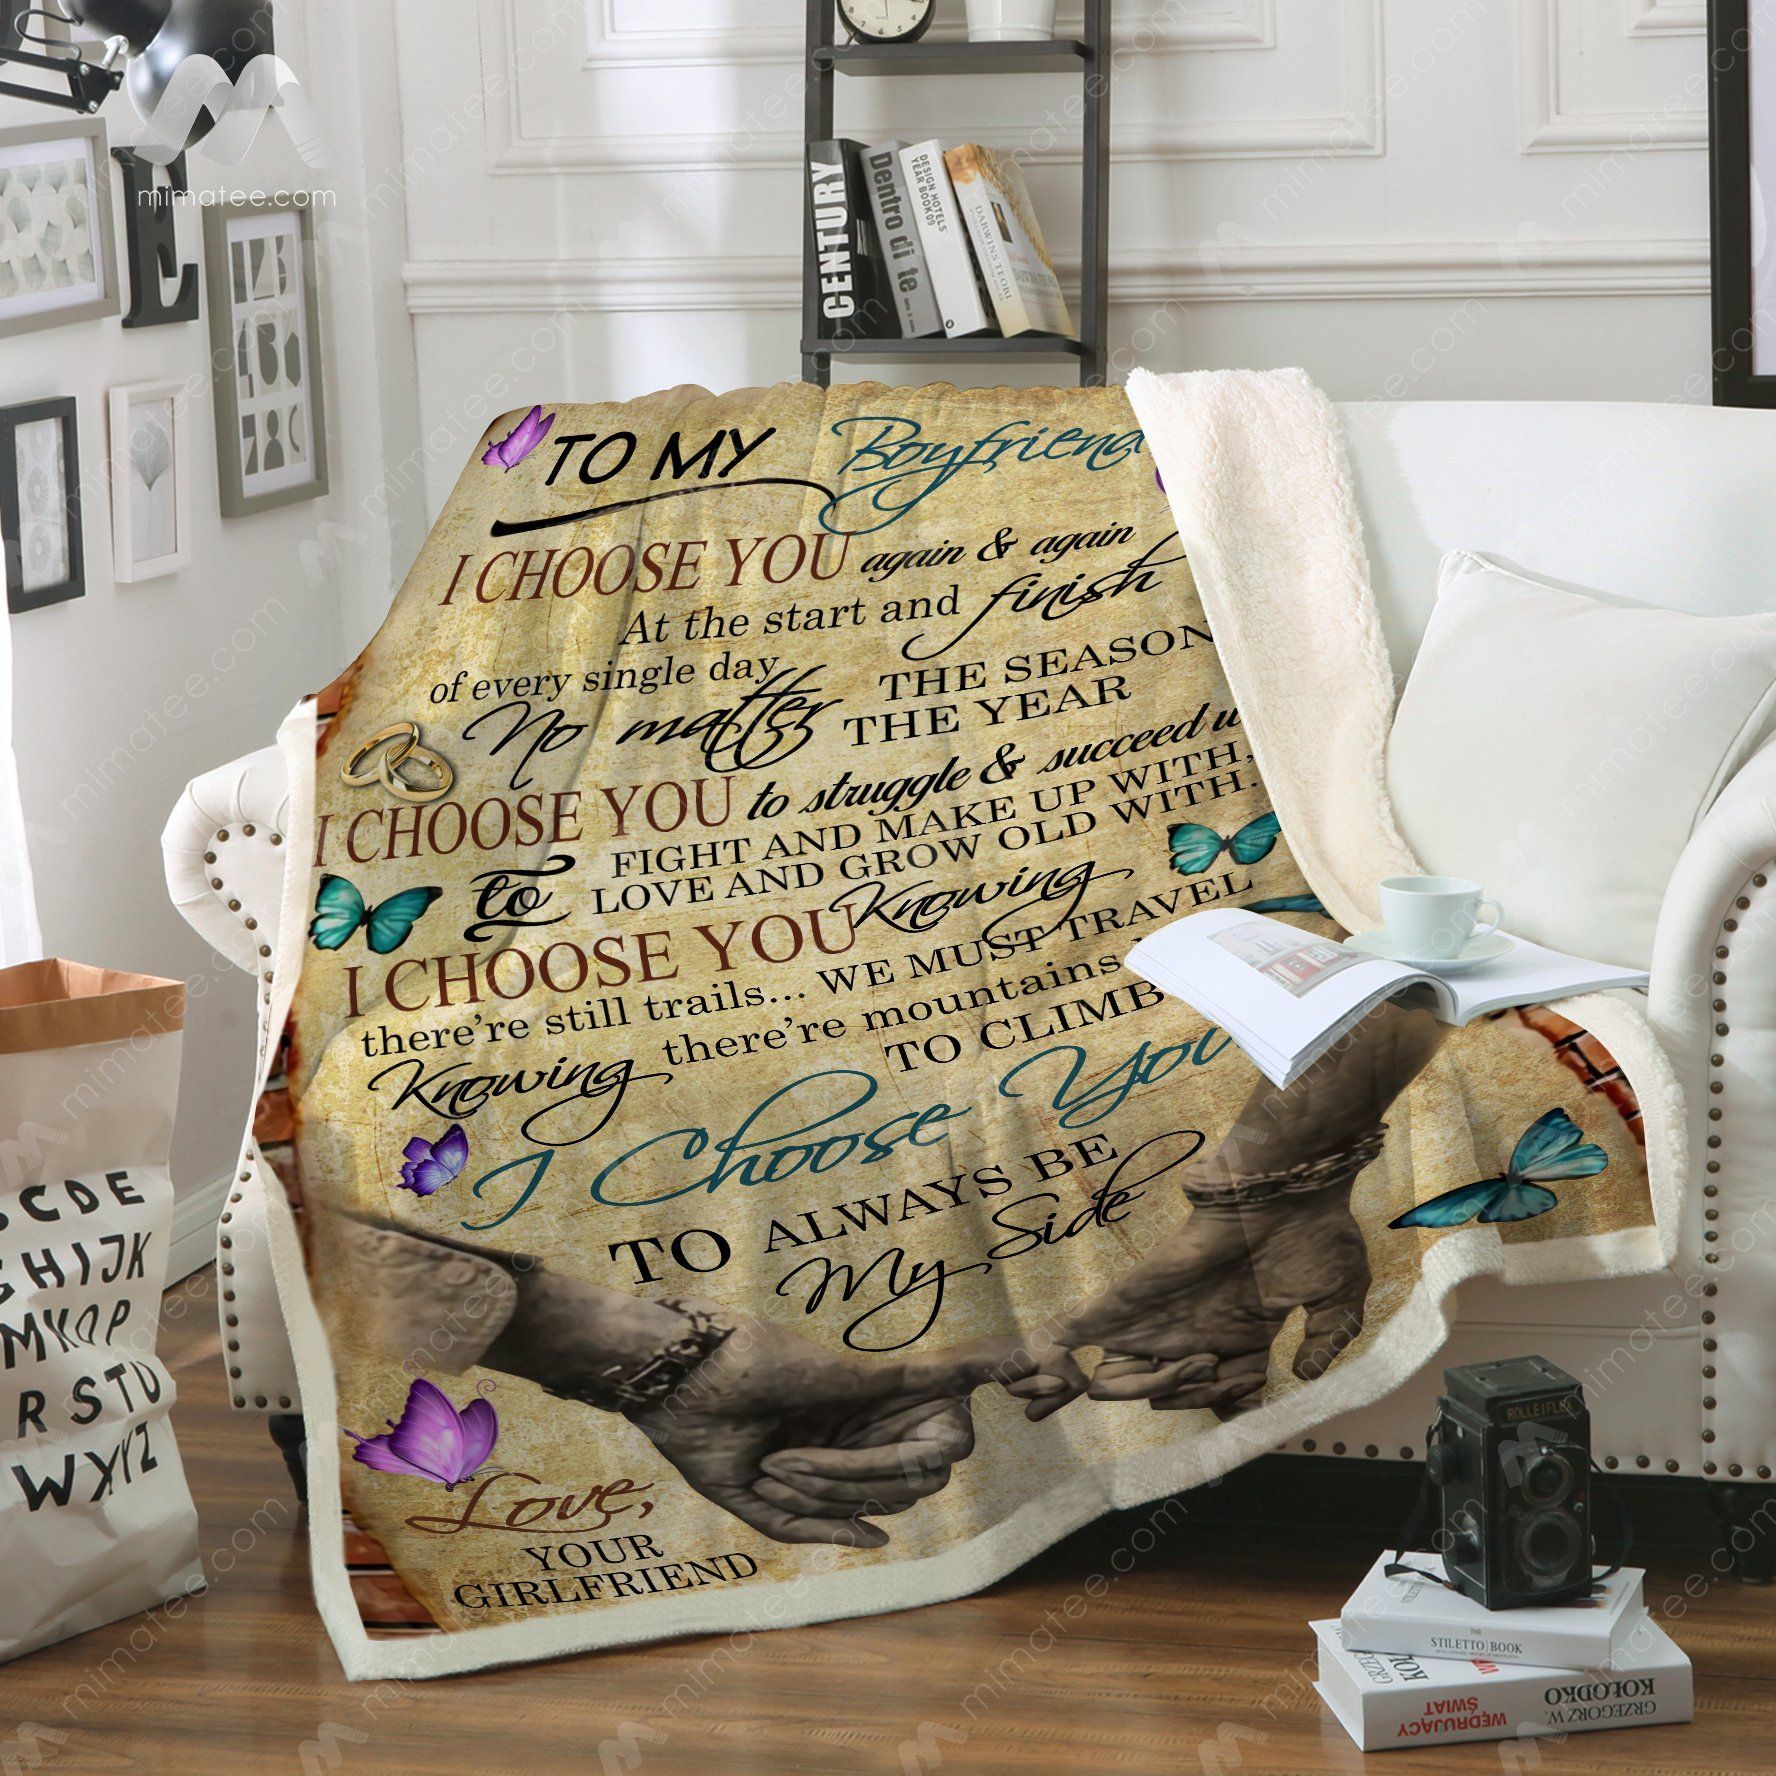 mimatee.com
E
CENTURY
Dentro di te
DESIGN HOTELS
YEAR BOOK 09
DARWINS TEORI
TO MY Boyfriend
I CHOOSE YOU again & again
At the start and finish
of every single day
No matter THE SEASON
THE YEAR
I CHOOSE YOU to struggle & succeed
FIGHT AND MAKE UP WITH,
to LOVE AND GROW OLD WITH.
I CHOOSE YOU Knowing
there're still trails... WE MUST TRAVEL
Knowing there're mountains
TO CLIMB
I Choose You
TO ALWAYS BE
My Side
Love,
YOUR
GIRLFRIEND
CDE
GHIJK
MNOP
R STU
WXYZ
ROLLEIFLEX
THE
STILETTO BOOK
GRZEGORZ W.
KOŁODKO
WĘDRUJĄCY
ŚWIAT